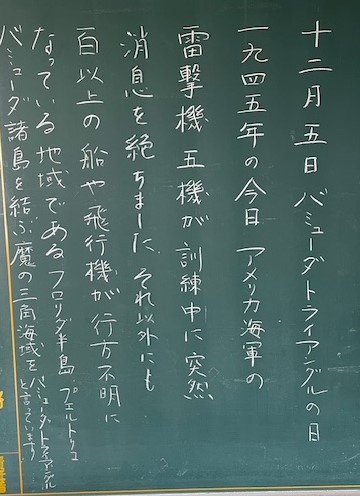 十二月五日 バミューダトライアングルの日
一九四五年の今日 アメリカ海軍の
雷撃機五機が訓練中に突然
消息を絶ちました、それ以外にも
百以上の船や飛行機が行方不明に
なっている地域であるフロリダ半島 プエルトリコ
バミューダ諸島を結ぶ魔の三角海域をバミューダトライアングル
と言っています